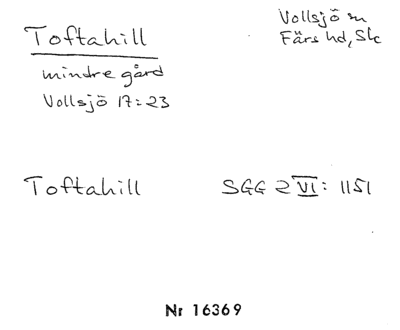 Toftahill
Vollsjö sn
Färs hd, Sk
mindre gård
Vollsjö 17:23
Toftahill
SGG 2 VI: 1151
Nr 16369